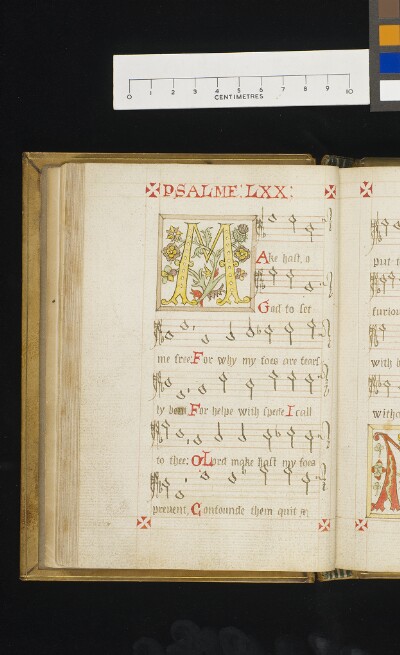 0 1 2 3 4 5 6 7 8 9 10
CENTIMETRES
PSALME: LXX:
M
Ake hast, o
God to set
me free: For why my foes are
ly For helpe with speede I call
to thee: O Lord make hast my foes
prevent, Confounde them quit
put
furiou
with
witho